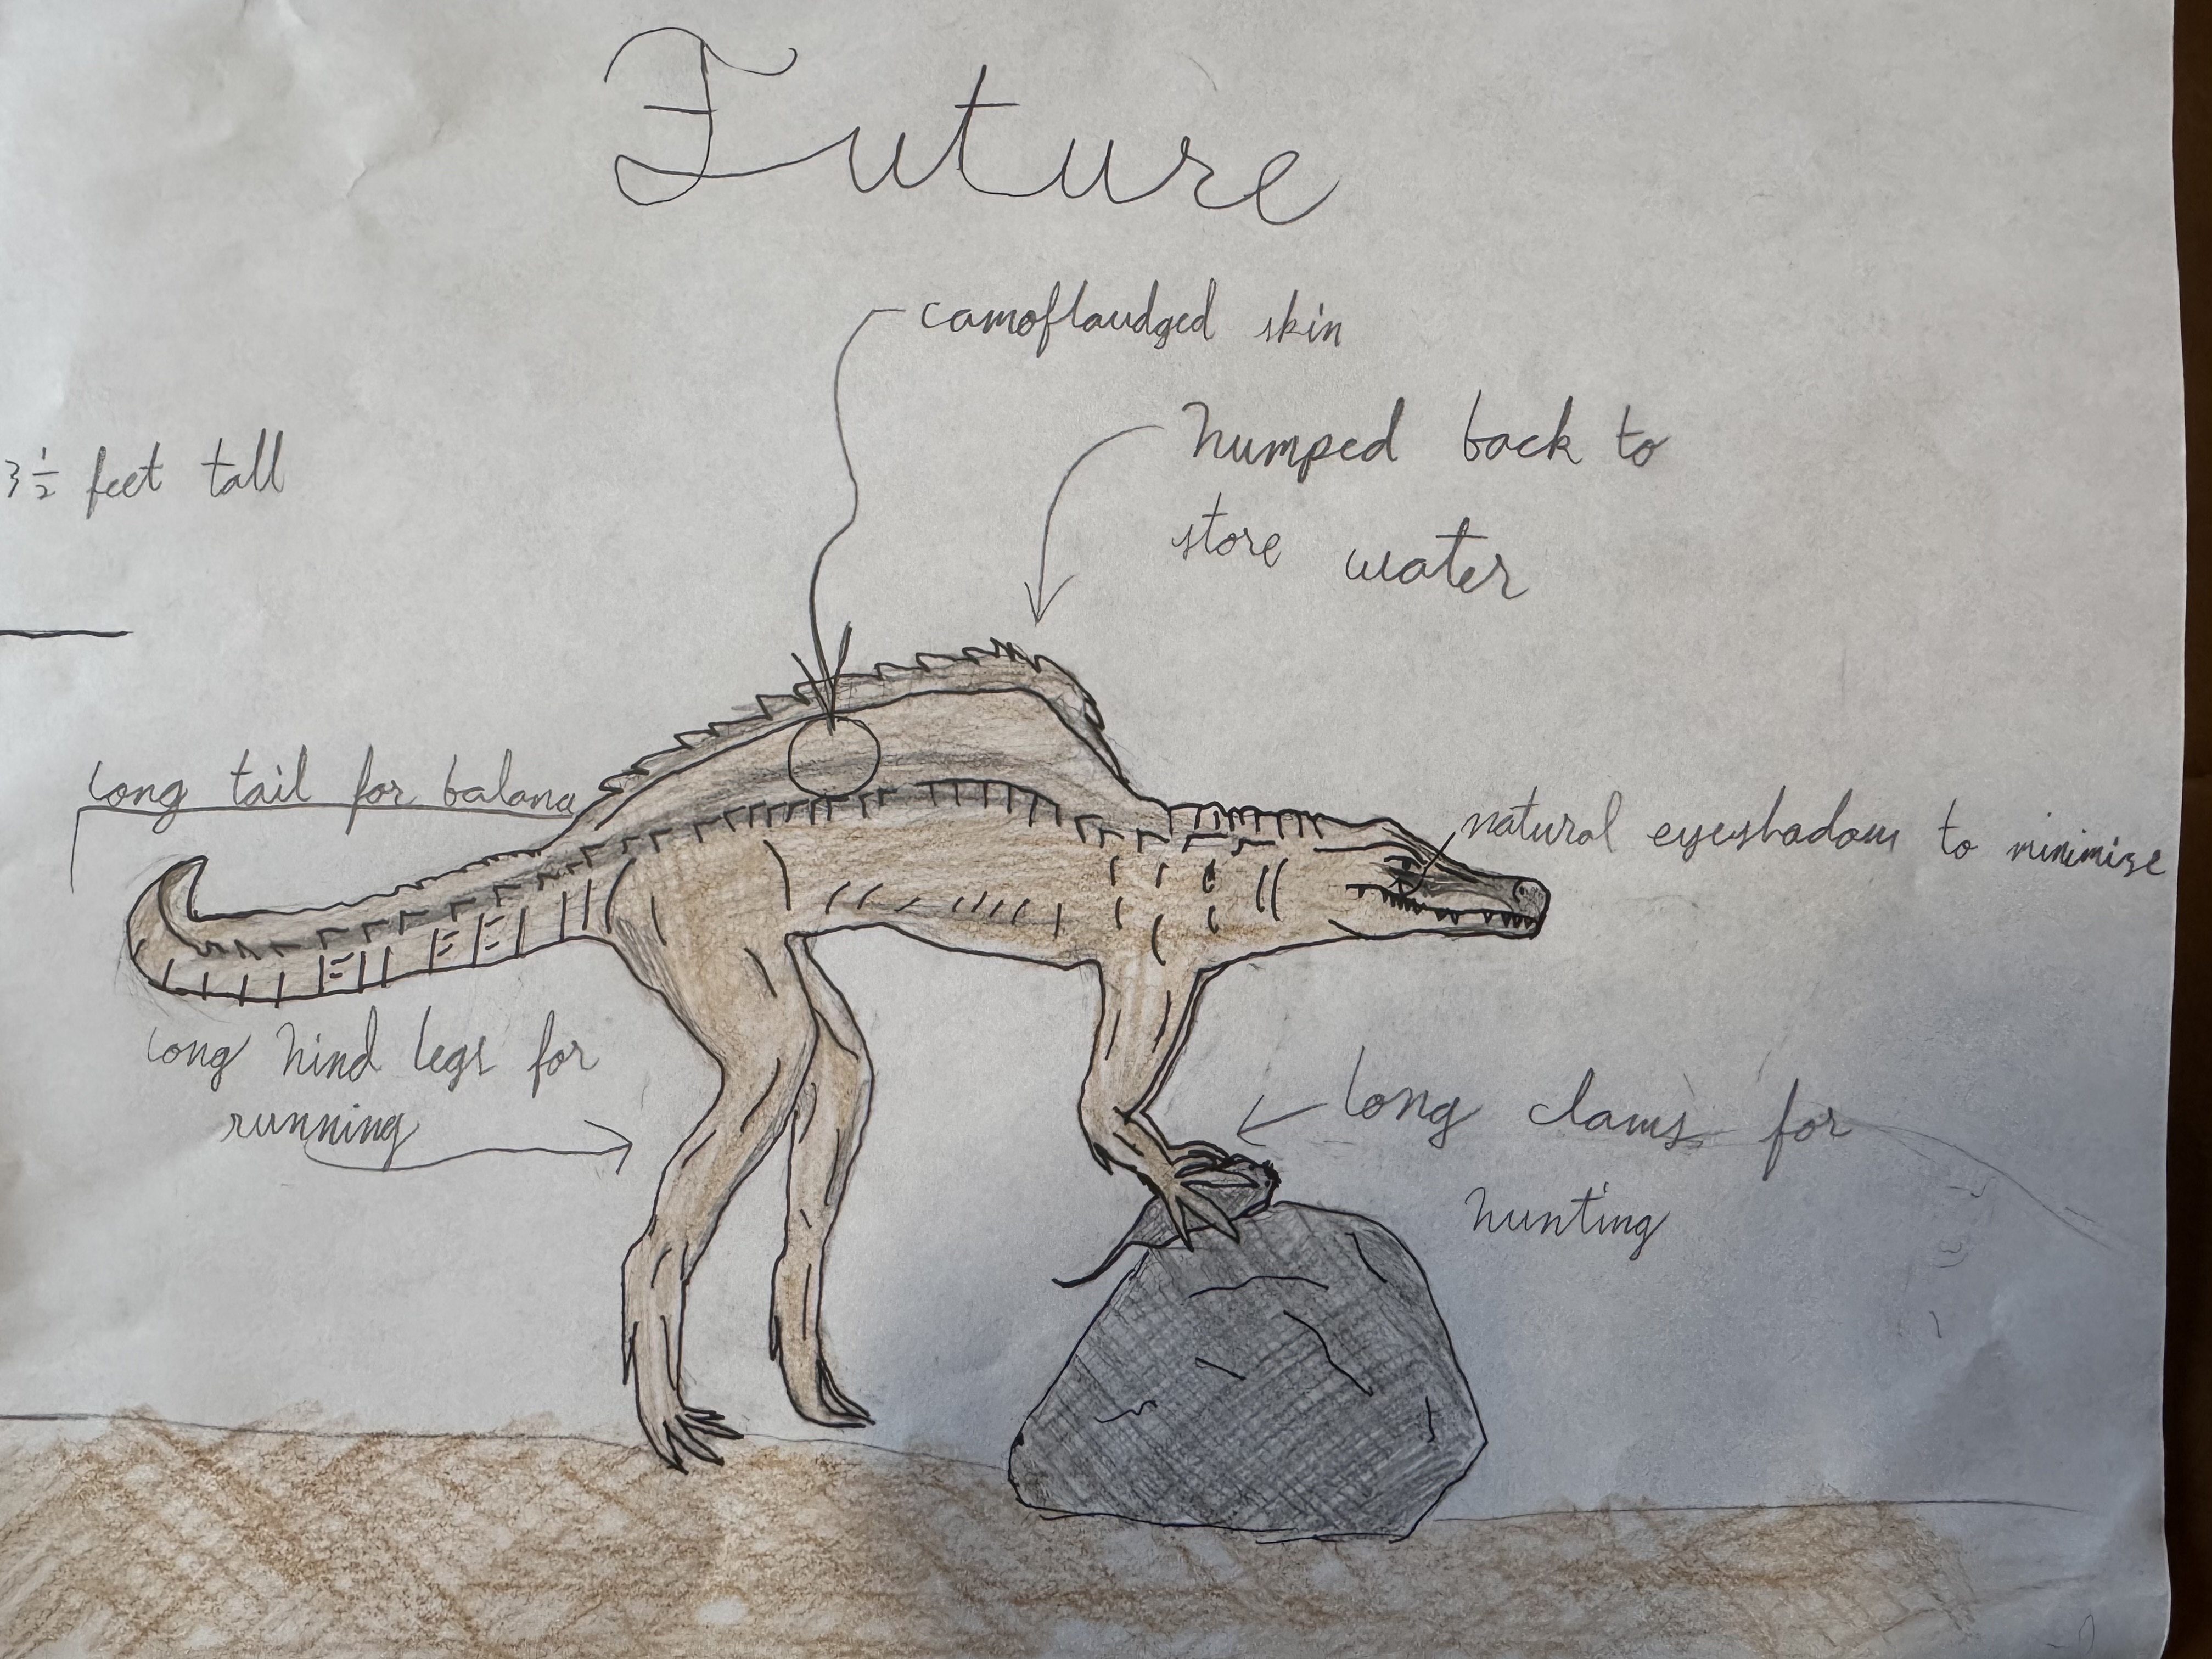 Future
camoflaudged skin
humped back to
store water
3 ½ feet tall
long tail for balance
natural eyeshadow to minimise
long hind legs for
running
long claws for
hunting